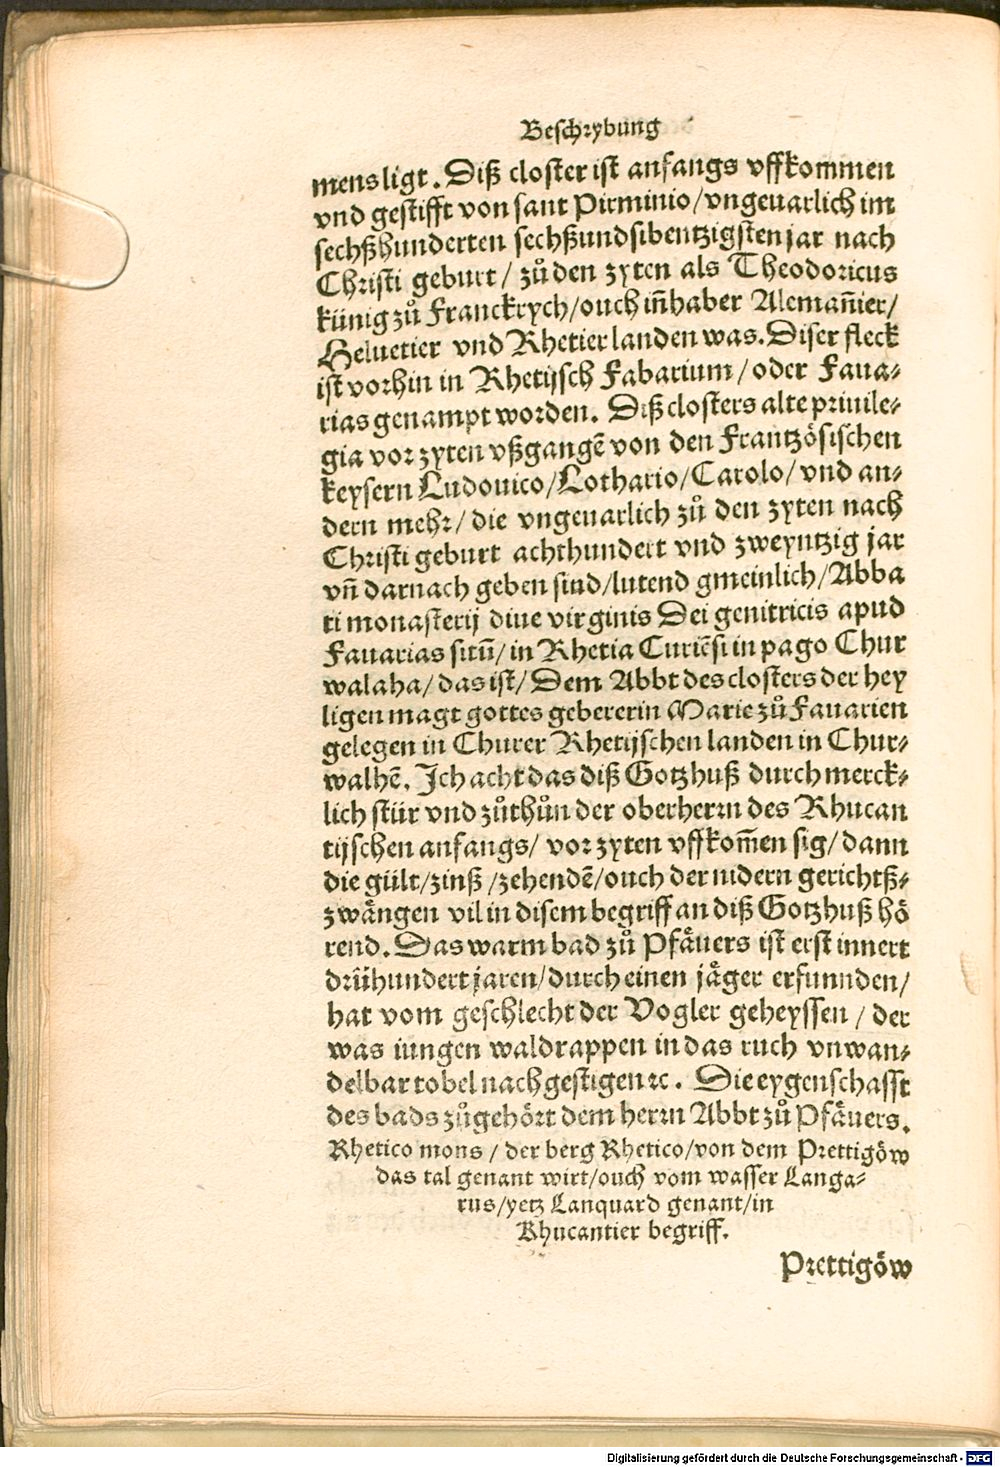 Beschrybung
mens ligt. Diß closter ist anfangs vffkommen
vnd gestifft von sant Pirminio/vngeuarlich im
sechßhunderten sechßundsibentzigsten jar nach
Christi geburt/zuͦ den zyten als Theodoricus
künig zuͦ Franckrych/ouch iñhaber Alemañier/
Heluetier vnd Rhetier landen was. Diser fleck
ist vorhin in Rhetijsch Fabarium/oder Faua⸗
rias genampt worden. Diß closters alte priuile⸗
gia vor zyten vßgangē von den Frantzösischen
keysern Ludouico/Lothario/Carolo/vnd an⸗
dern mehr/die vngeuarlich zuͦ den zyten nach
Christi geburt achthundert vnd zweyntzig jar
vñ darnach geben sind/lutend gmeinlich/Abba
ti monasterij diue virginis Dei genitricis apud
Fauarias sitū/in Rhetia Curiēsi in pago Chur
walaha/das ist/Dem Abbt des closters der hey
ligen magt gottes gebererin Marie zuͦ Fauarien
gelegen in Churer Rhetijschen landen in Chur⸗
walhē. Ich acht das diß Gotzhuß durch merck⸗
lich stür vnd zuͦthuͦn der oberherrn des Rhucan
tijschen anfangs/vor zyten vffkom̄en sig/dann
die gült/zinß/zehendē/ouch der nidern gerichtß⸗
zwängen vil in disem begriff an diß Gotzhuß hö
rend. Das warm bad zuͦ Pfäuers ist erst innert
drühundert jaren/durch einen jäger erfunnden/
hat vom geschlecht der Vogler geheyssen/der
was iungen waldrappen in das ruch vnwan⸗
delbar tobel nachgestigen ꝛc. Die eygenschafft
des bads zuͦgehört dem herrn Abbt zuͦ Pfäuers.
Rhetico mons/der berg Rhetico/von dem Prettigöw
das tal genant wirt/ouch vom wasser Langa⸗
rus/yetz Lanquard genant/in
Rhucantier begriff.
Prettigöw
Digitalisierung gefördert durch die Deutsche Forschungsgemeinschaft - DFG